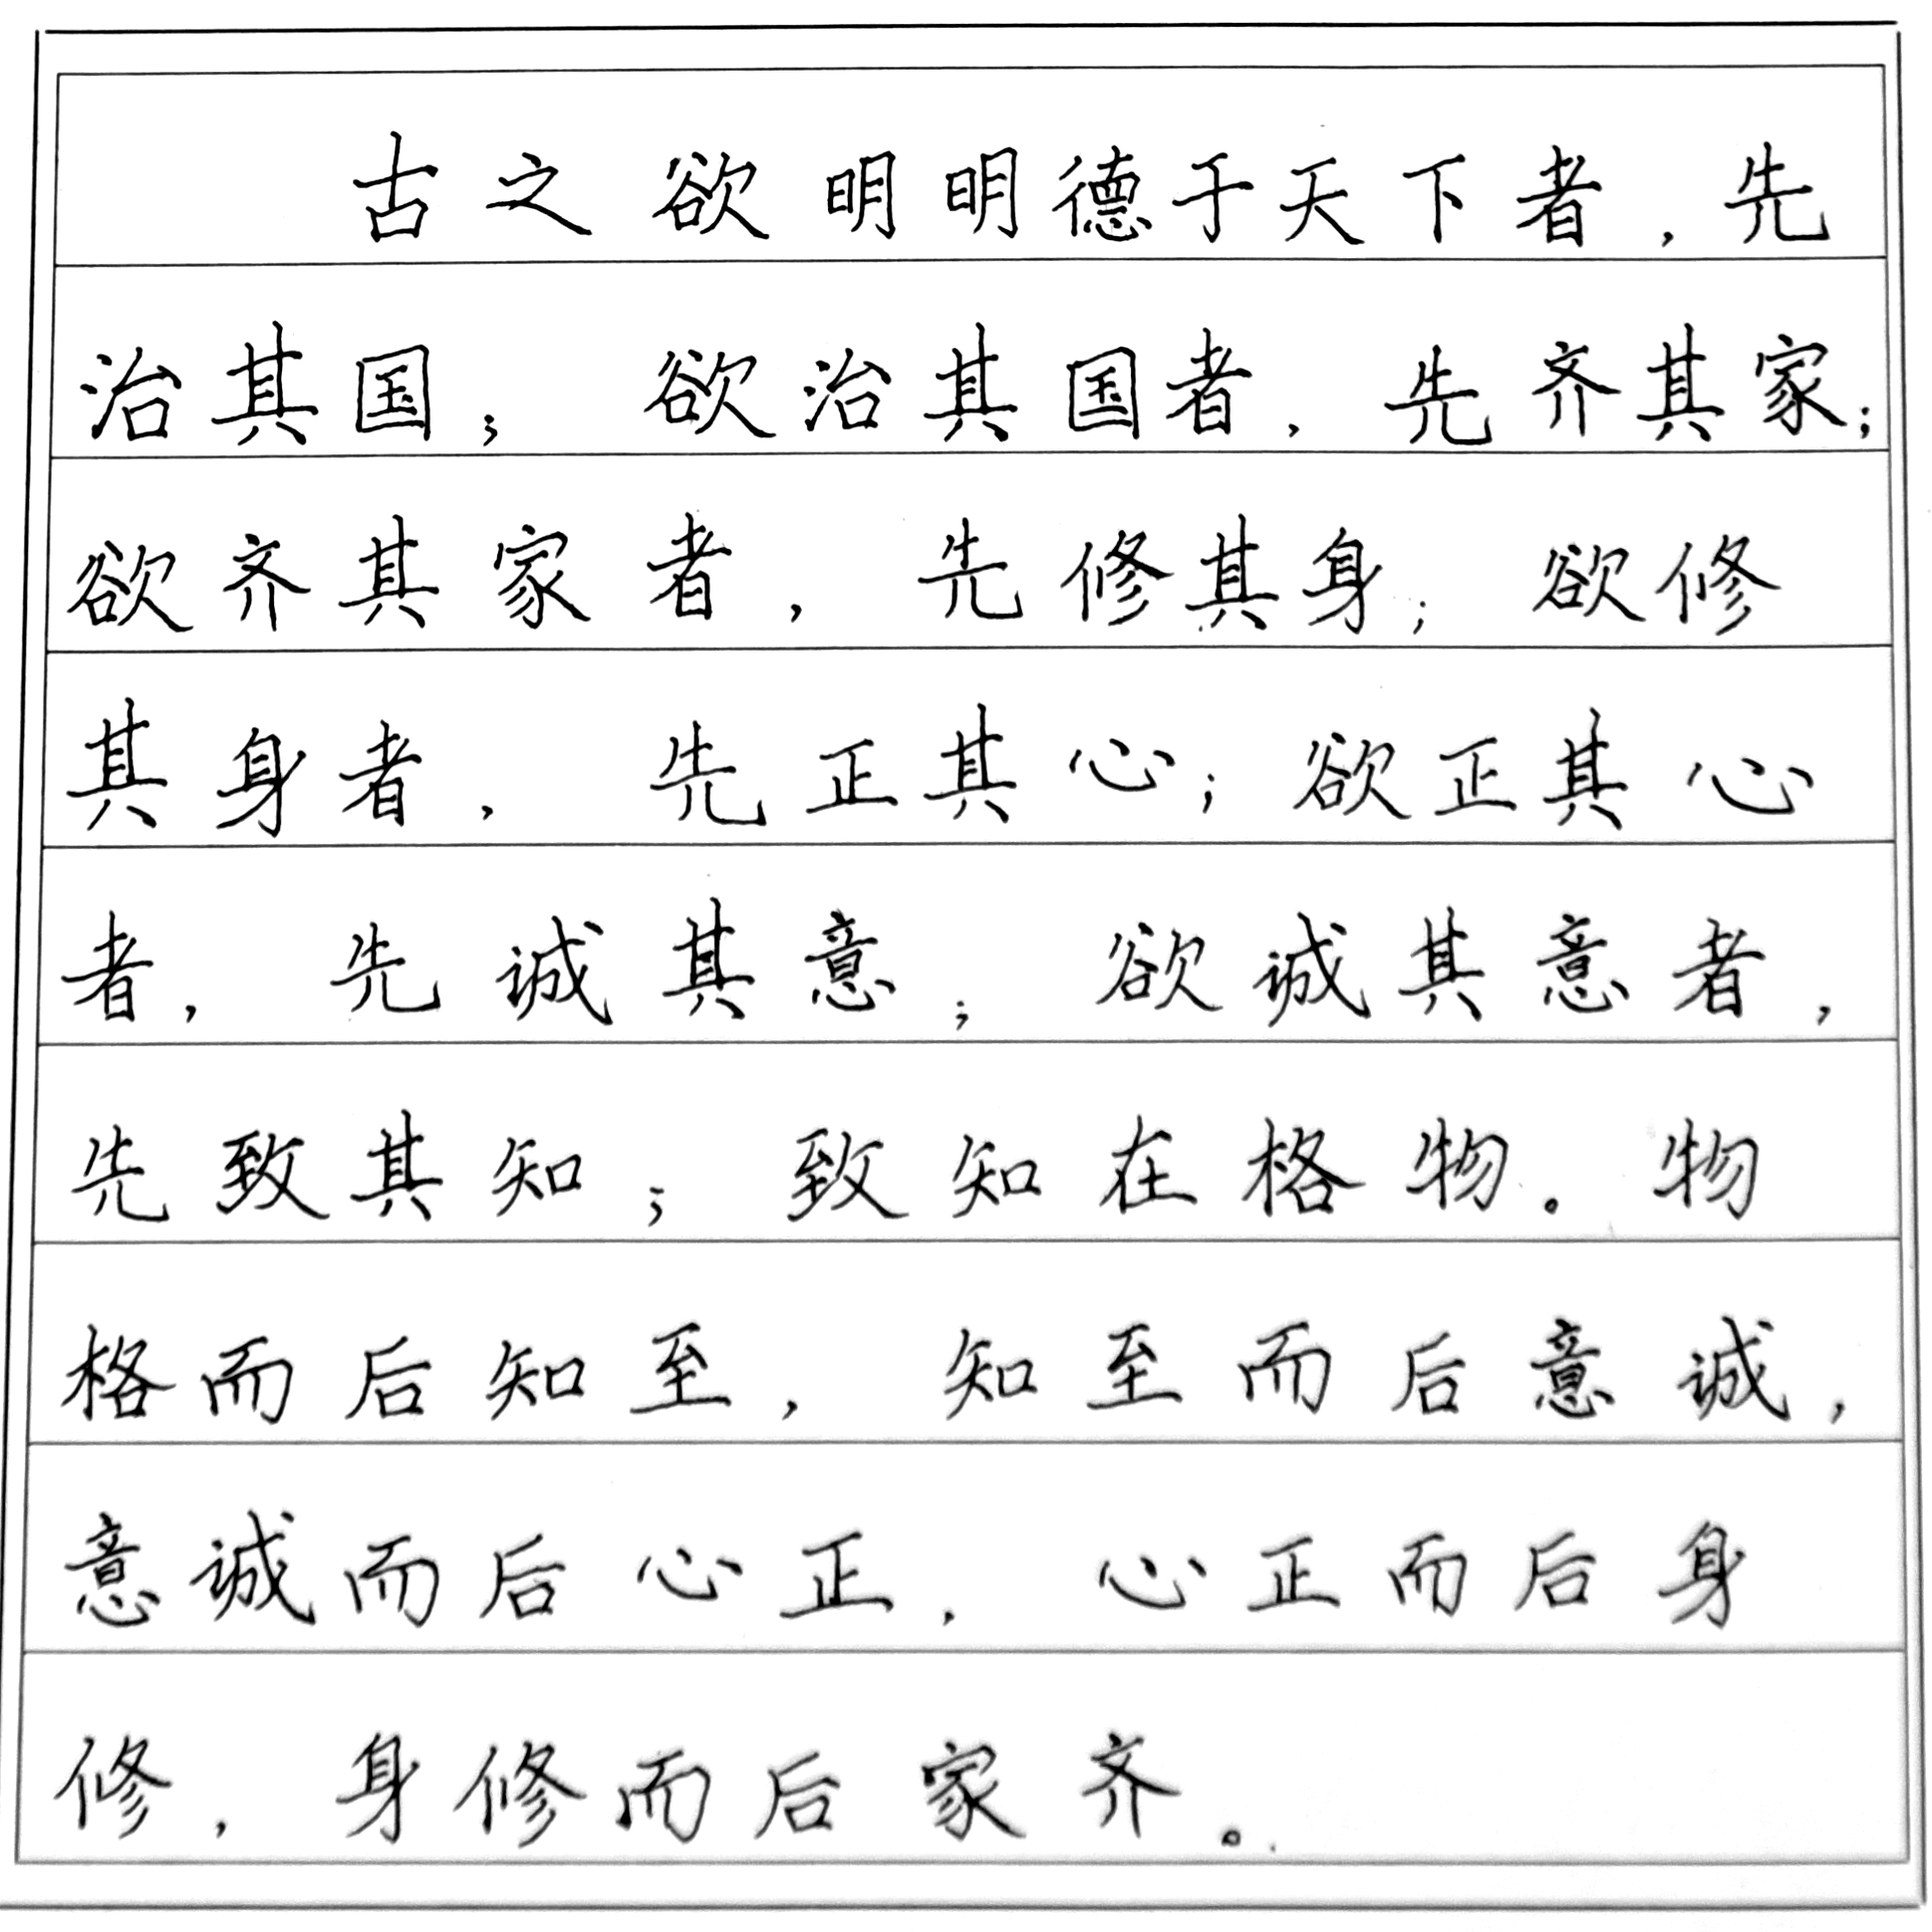 古之欲明明德于天下者，先
治其国；欲治其国者，先齐其家；
欲齐其家者，先修其身；欲修
其身者，先正其心；欲正其心
者，先诚其意；欲诚其意者，
先致其知；致知在格物。物
格而后知至，知至而后意诚，
意诚而后心正，心正而后身
修，身修而后家齐。